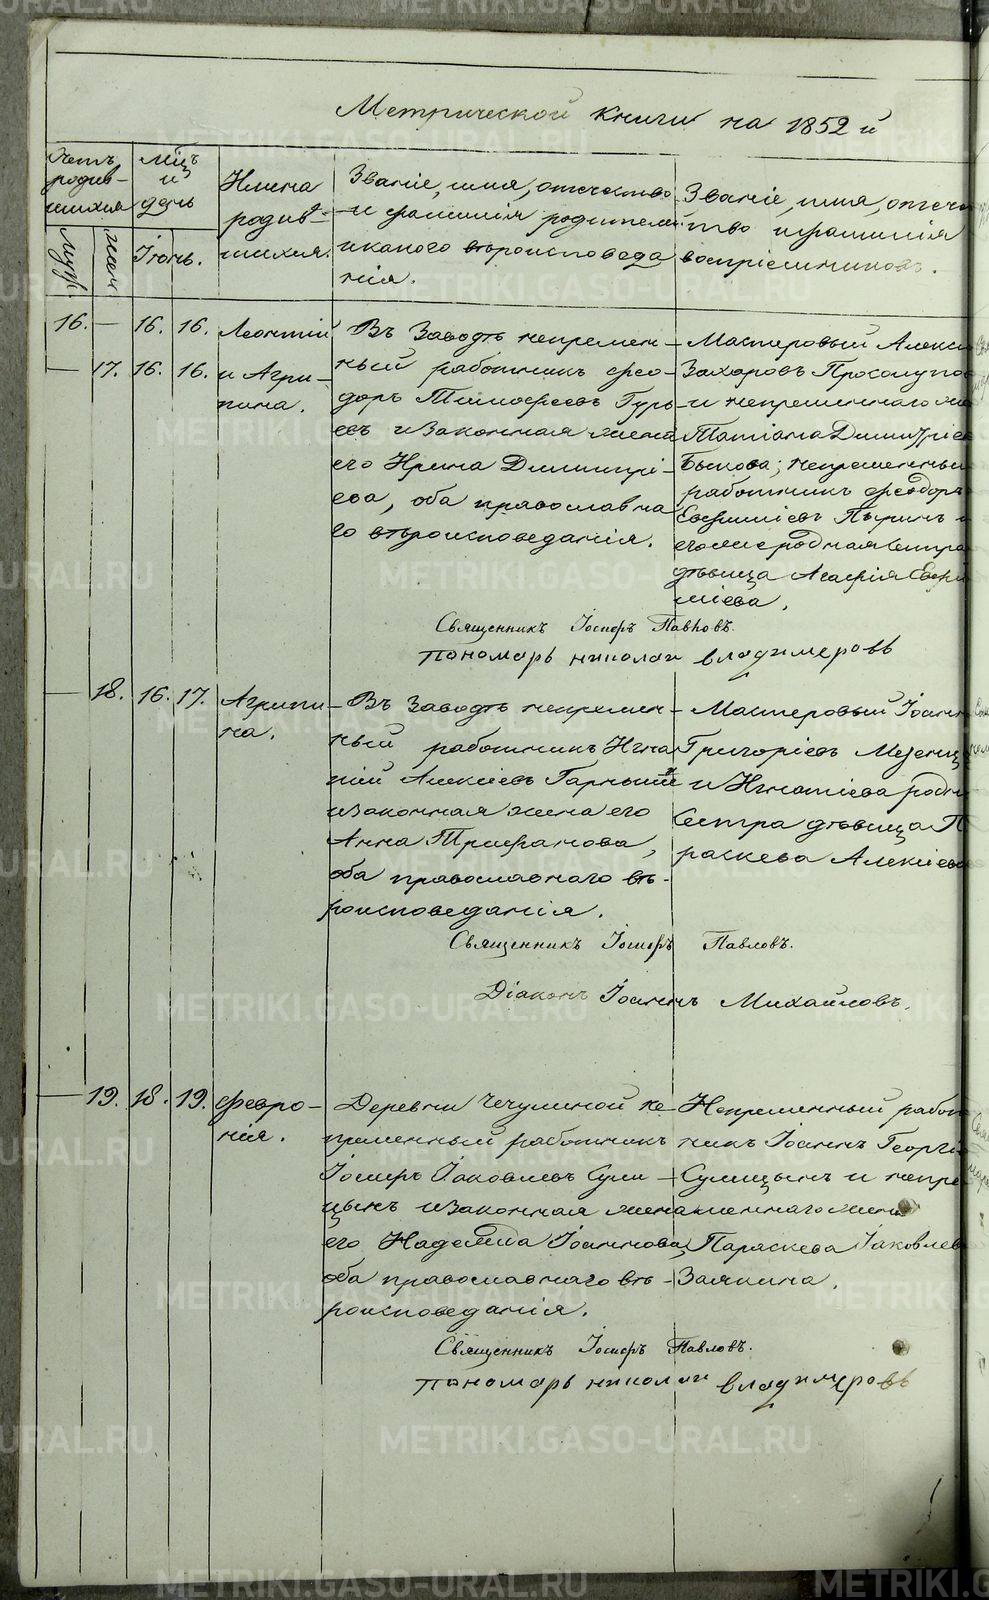 Метрической книги на 1852 й
Счетъ
родив-
шихся
Муж.
Жен.
Мѣц
и
день
Іюнь.
Имена
родив-
шихся.
Званіе, имя, отечество
и фамилія родителей
и какого вѣроисповеда
нія.
Званіе, имя, отече
тво и фамилія
воспріемниковъ.
16. — 16. 16. Леонтій
— 17. 16. 16. и Агри-
пина.
Въ Заводѣ непремен-
ный работникъ Фео-
доръ Тимофеевъ Гурь
евъ и Законная жена
его Ирина Димитрі-
ева, оба православна
го вѣроисповеданія.
Мастеровый Алекси
Захаровъ Просолупов
и непременнаго же
Татіана Димитріев
Быкова; непременны
работникъ Феодоръ
Евфиміевъ Пыринъ и
его же родная сестра
дѣвица Агафія Евфи
міева,
Священникъ Іосифъ Павловъ.
Пономарь николаи владимеровъ
— 18. 16. 17. Агрипи
на.
Въ Заводѣ непремен-
ный работникъ Игна
тій Алексіевъ Гарныши
и законная жена его
Анна Трифанова,
оба православнаго вѣ-
роисповеданія.
Мастеровый Іоанн
Григоріевъ Мезенц
и Игнатіева родн
сестра дѣвица П
раскева Алексіева
Священникъ Іосифъ Павловъ.
Діаконъ Іоаннъ Михайловъ.
— 19. 18. 19. Февро-
нія.
Деревни Чечулиной не-
пременный работникъ
Іосифъ Іаковлевъ Сули-
цынъ и законная жена
его Надежда Іоаннова,
оба православнаго вѣ-
роисповеданія.
Непременный работ
никъ Іоаннъ Георгі
Сулицынъ и непре
меннаго жена
Параскева Іаковлев
Заякина.
Священникъ Іосифъ Павловъ.
Пономарь николаи владимеровъ
METRIKI.GASO-URAL.RU